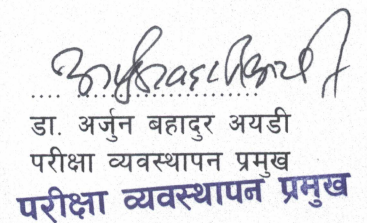 डा. अर्जुन बहादुर अयडी
परीक्षा व्यवस्थापन प्रमुख
परीक्षा व्यवस्थापन प्रमुख